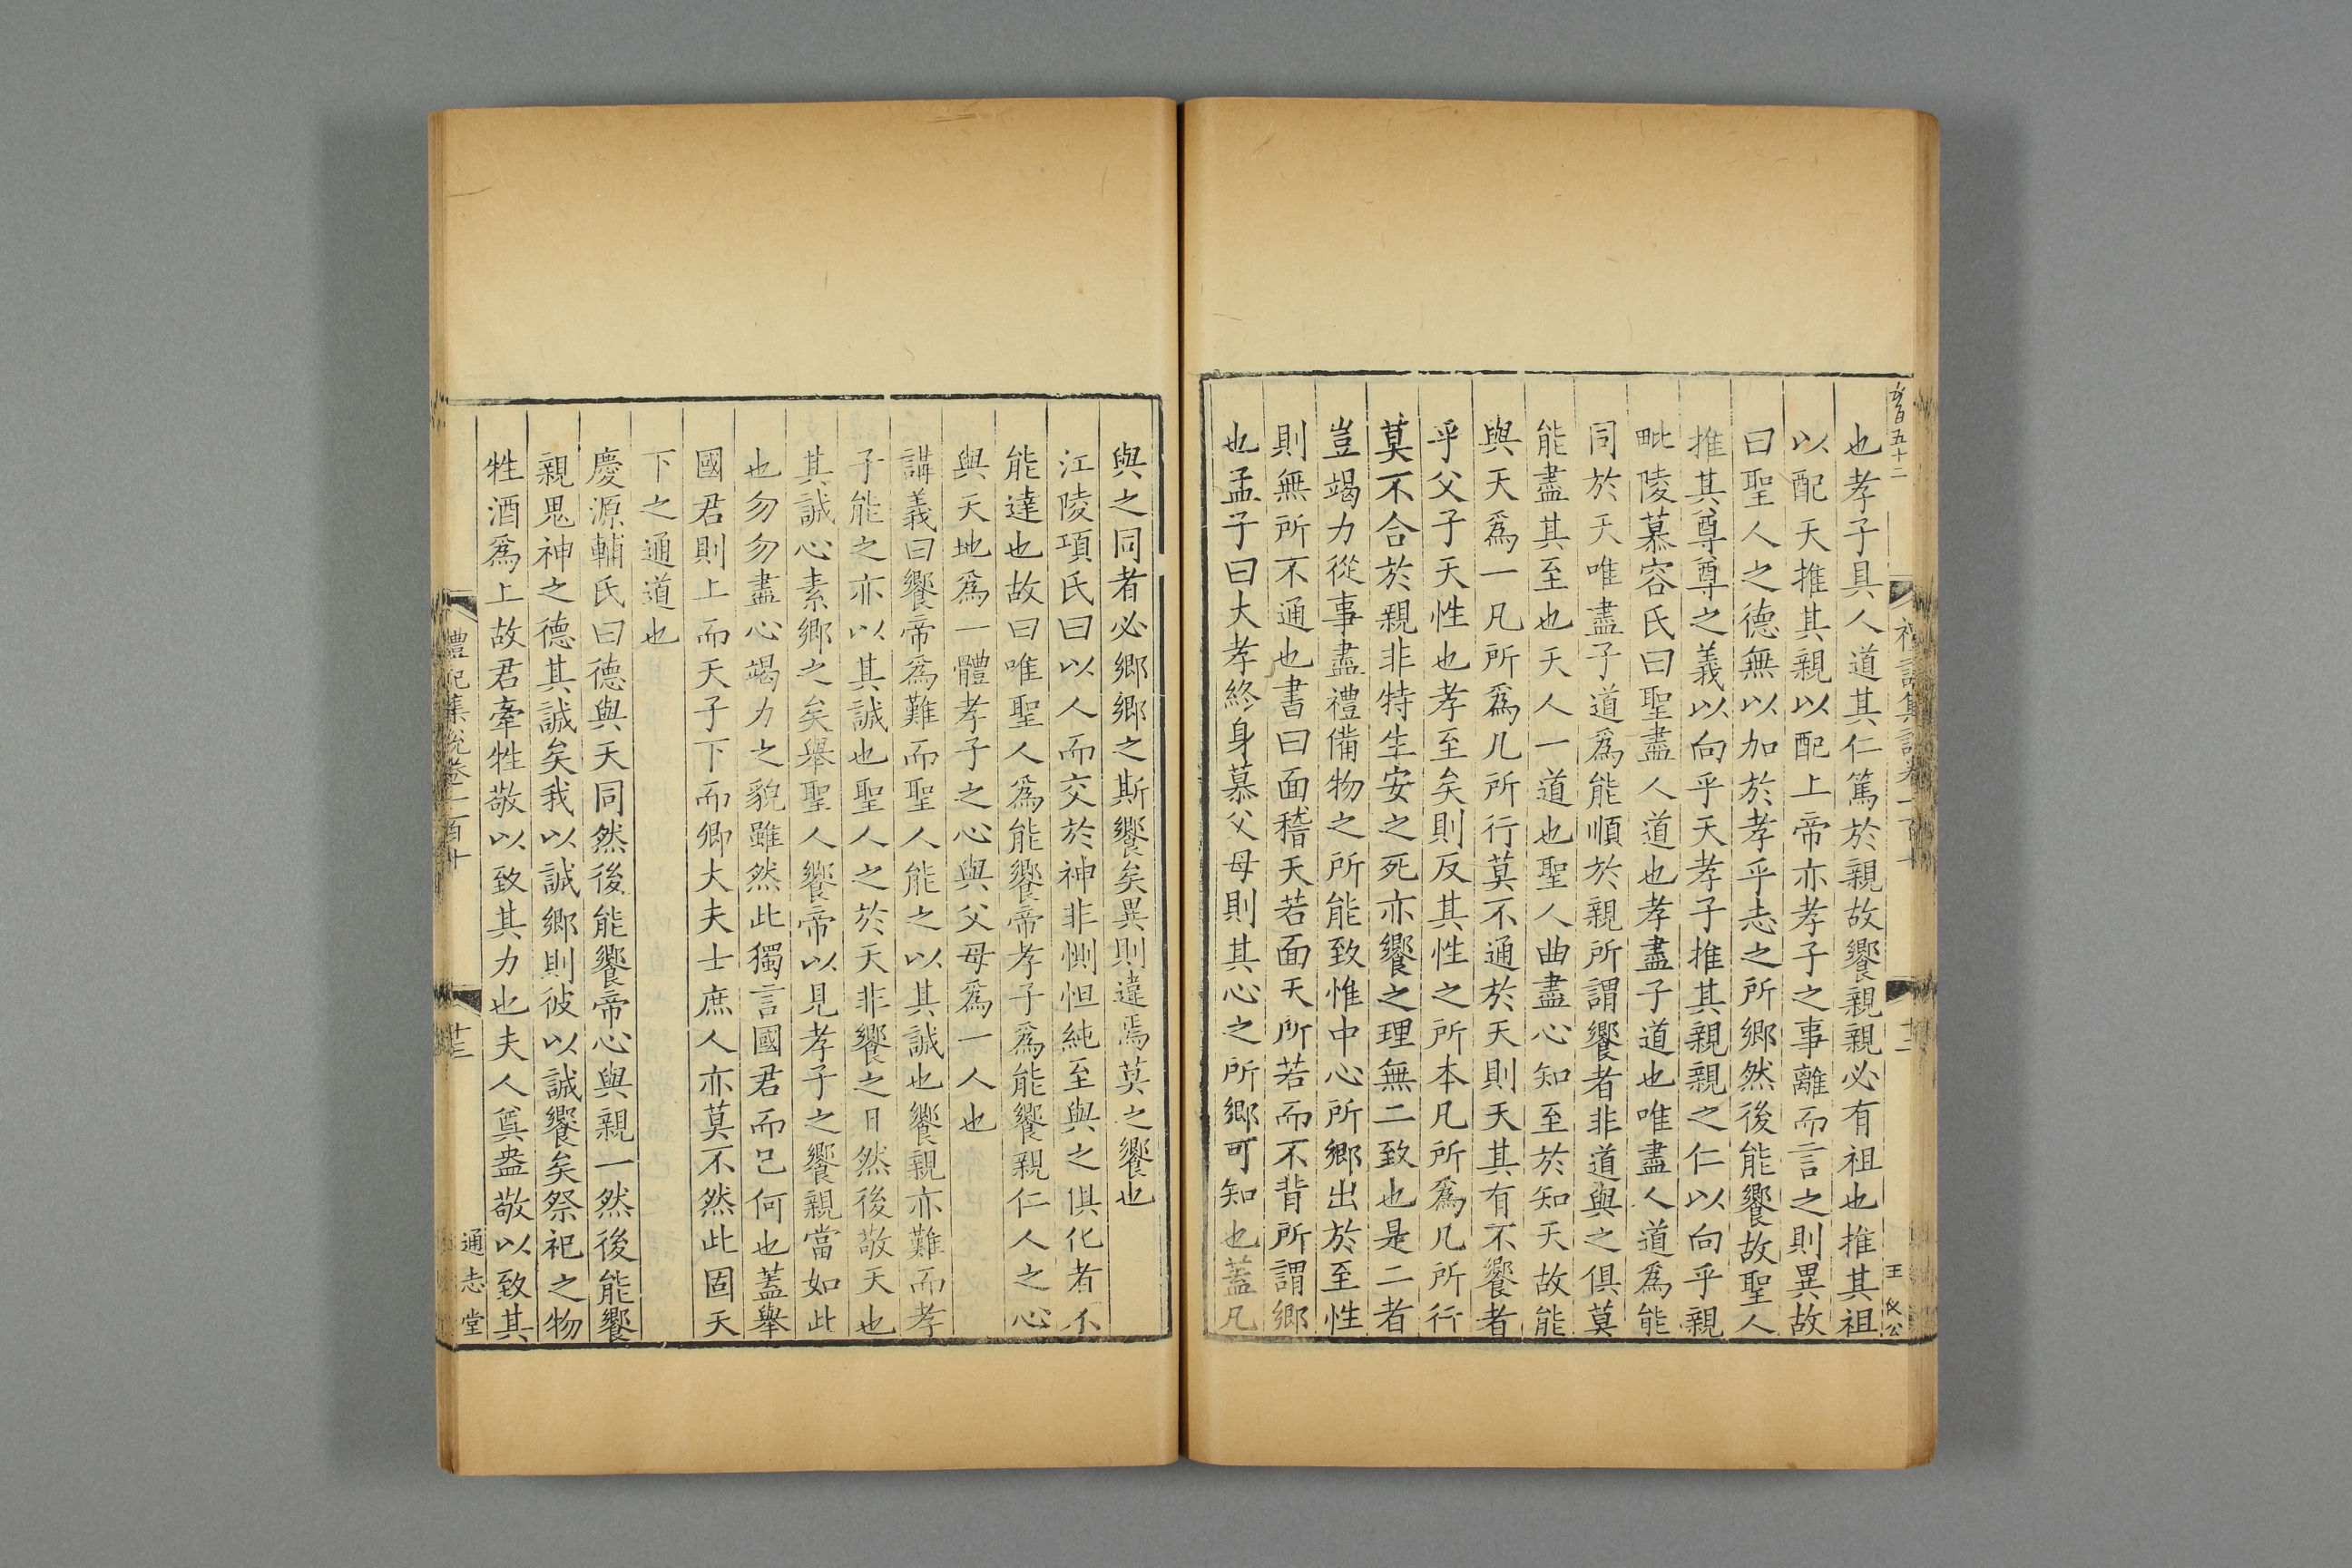 也孝子具人道其仁篤於親故饗親親必有祖也推其祖
以配天推其親以配上帝亦孝子之事離而言之則異故
曰聖人之德無以加於孝乎志之所鄉然後能饗故聖人
推其尊尊之義以向乎天孝子推其親親之仁以向乎親
毗陵慕容氏曰聖盡人道也孝盡子道也唯盡人道爲能
同於天唯盡子道爲能順於親所謂饗者非道與之俱莫
能盡其至也天人一道也聖人曲盡心知至於知天故能
與天爲一凡所爲凡所行莫不通於天則天其有不饗者
乎父子天性也孝至矣則反其性之所本凡所爲凡所行
莫不合於親非特生安之死亦饗之理無二致也是二者
豈竭力從事盡禮備物之所能致惟中心所鄉出於至性
則無所不通也書曰面稽天若面天所若而不背所謂鄉
也孟子曰大孝終身慕父母則其心之所鄉可知也蓋凡
與之同者必鄉鄉之斯饗矣異則違焉莫之饗也
江陵項氏曰以人而交於神非惻怛純至與之俱化者不
能達也故曰唯聖人爲能饗帝孝子爲能饗親仁人之心
與天地爲一體孝子之心與父母爲一人也
講義曰饗帝爲難而聖人能之以其誠也饗親亦難而孝
子能之亦以其誠也聖人之於天非饗之日然後敬天也
其誠心素鄉之矣舉聖人饗帝以見孝子之饗親當如此
也勿勿盡心竭力之貌雖然此獨言國君而已何也蓋舉
國君則上而天子下而卿大夫士庶人亦莫不然此固天
下之通道也
慶源輔氏曰德與天同然後能饗帝心與親一然後能饗
親鬼神之德其誠矣我以誠鄉則彼以誠饗矣祭祀之物
牲酒爲上故君牽牲敬以致其力也夫人奠盎敬以致其
禮記集說卷一百十
通志堂